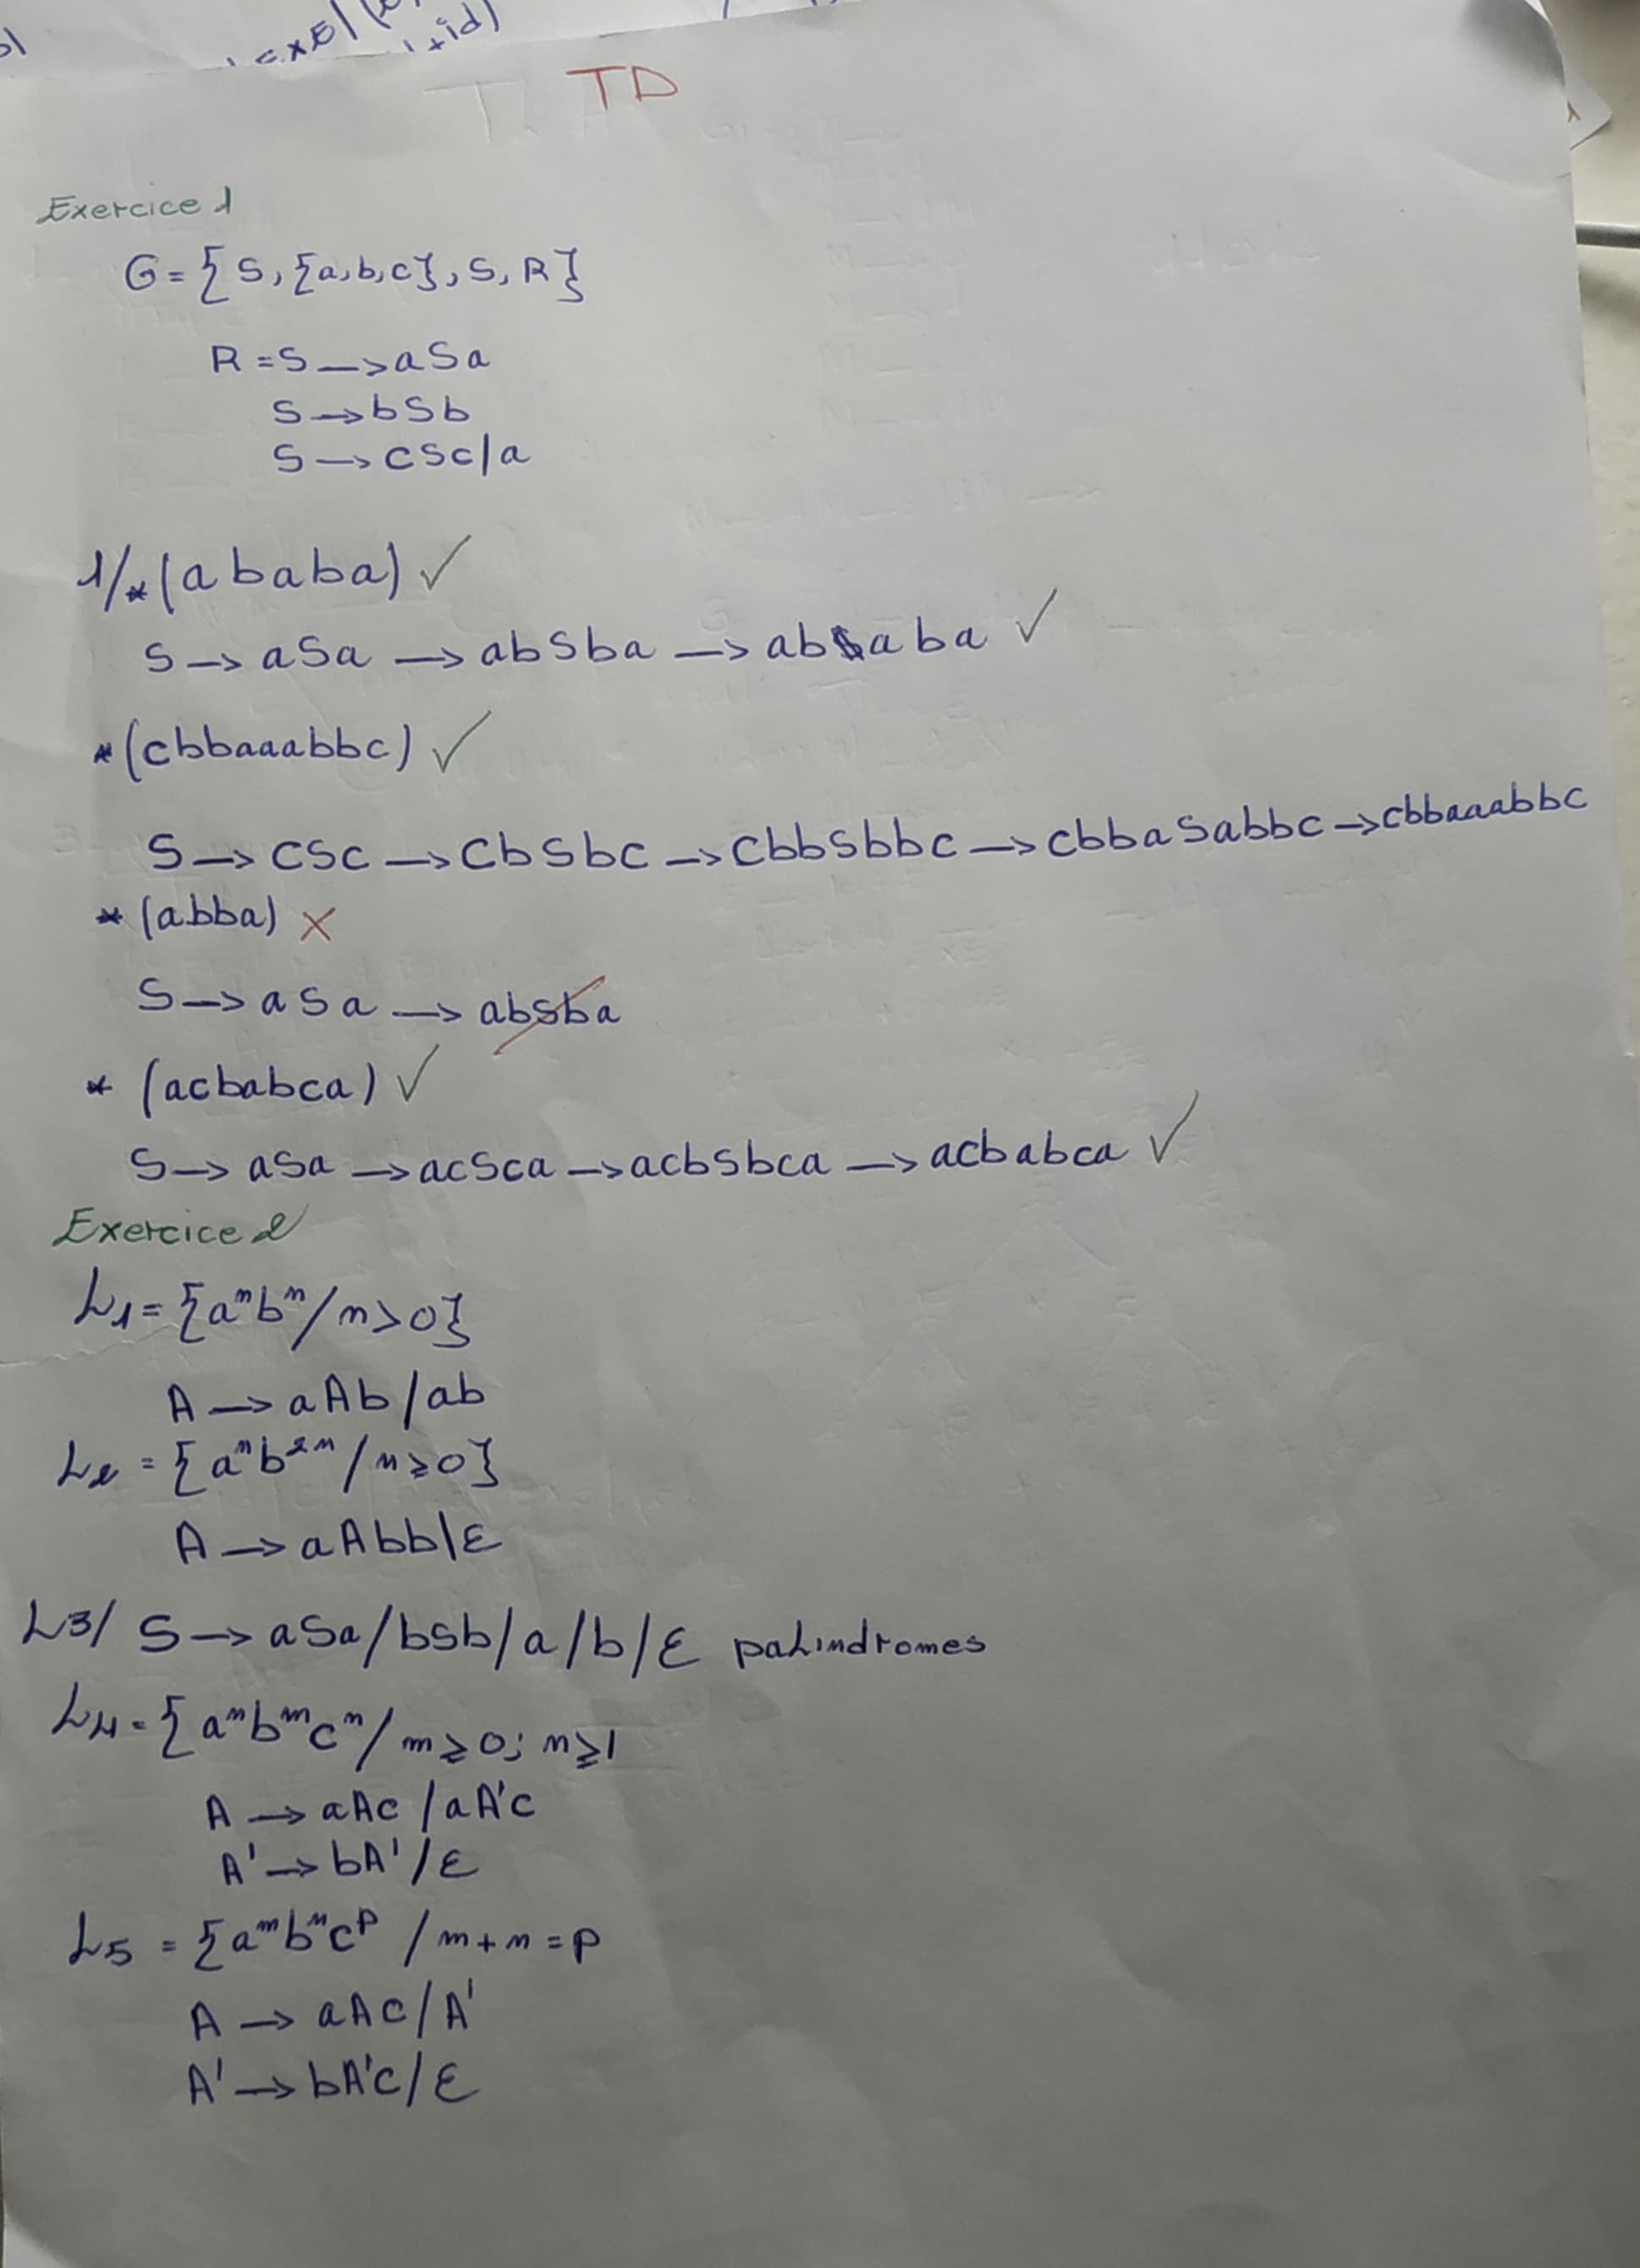 TD
Exercice 1
G = { S, {a,b,c}, S, R }
R = S —> aSa
S —> bSb
S —> cSc/a
1/* (ababa) ✓
S —> aSa —> abSba —> ababa ✓
* (cbbaaabbc) ✓
S —> cSc —> cbSbc —> cbbSbbc —> cbbaSabbc —> cbbaaabbc
* (abba) X
S —> aSa —> absba
* (acbabca) ✓
S —> aSa —> acSca —> acbsbca —> acbabca ✓
Exercice 2
L₁ = {aⁿbⁿ / n > 0}
A —> aAb / ab
L₂ = {aⁿb²ⁿ / n ≥ 0}
A —> aAbb | ε
L3/ S —> aSa / bsb / a / b / ε palindromes
L₄ = {aⁿbᵐcⁿ / m ≥ 0; n ≥ 1
A —> aAc / aA'c
A' —> bA' / ε
L₅ = {aᵐbⁿcᵖ / m + n = p
A —> aAc / A'
A' —> bA'c / ε